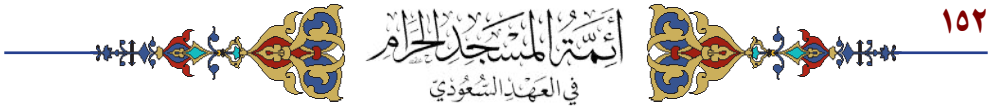 ١٥٢
أَئِمَّةُ المَسْجِدِ الحَرَامِ
في العَهْدِ السُّعُوْدِيّ